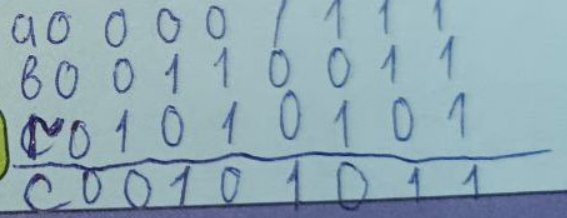 a 0 0 0 0 1 1 1 1
в 0 0 1 1 0 0 1 1
0 1 0 1 0 1 0 1
C 0 0 1 0 1 0 1 1